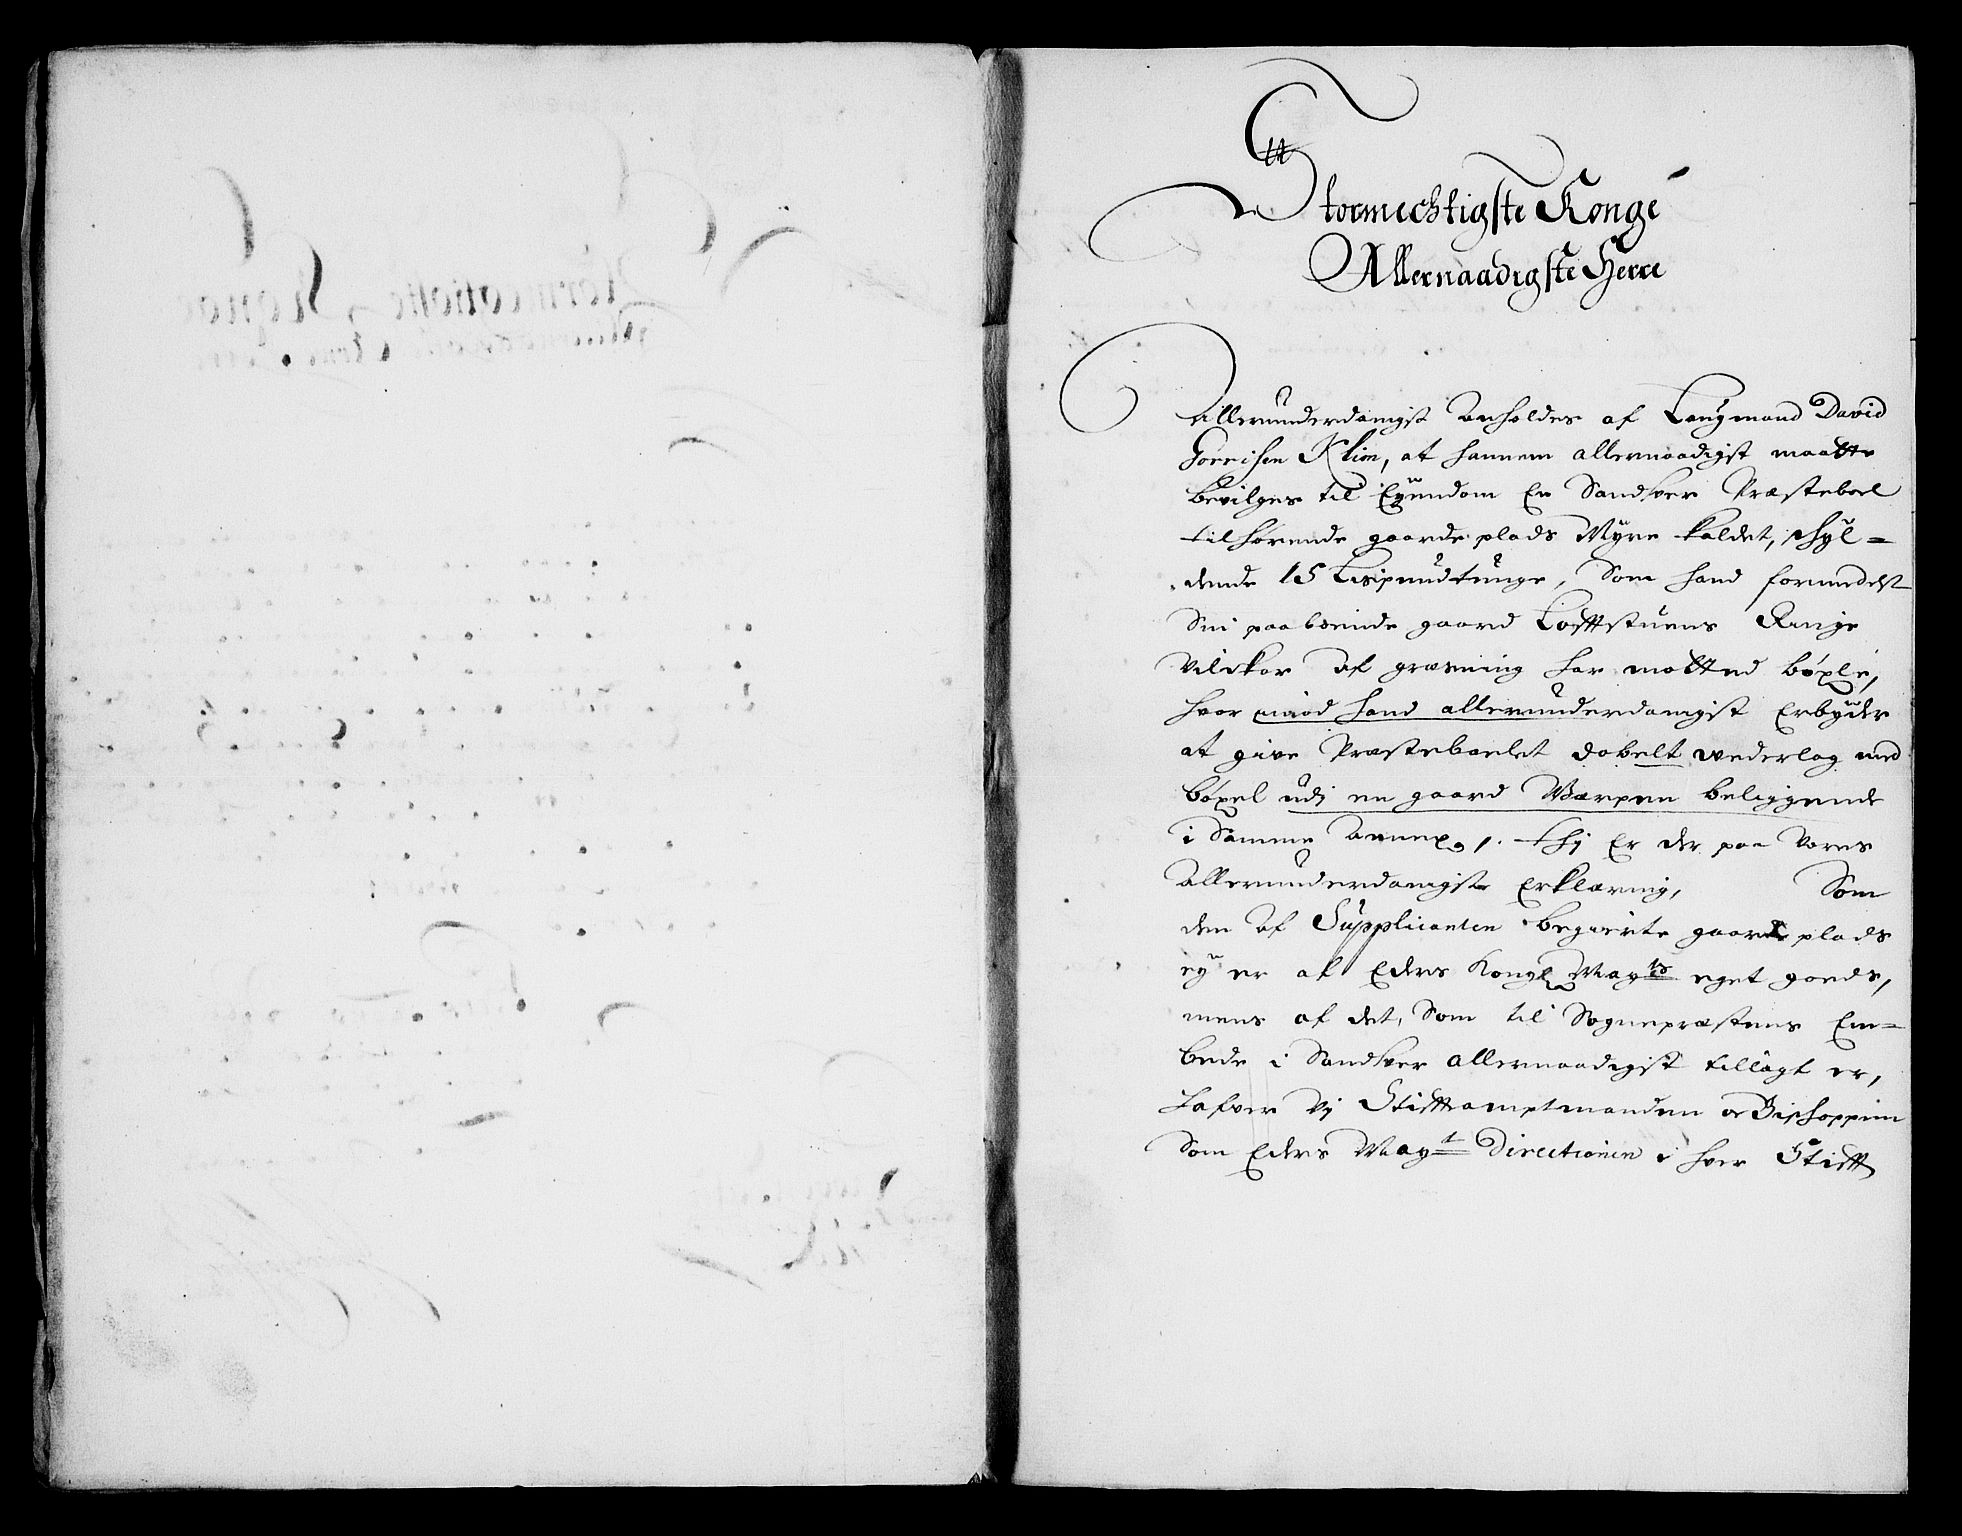 Stormechtigste Konge
Allernaadigste Herre
Allerunderdanigst anholdes af Laugmand David
Görrisen Klim, at hannem allernaadigst maatte
bevilges til Eyendom En Sandsver Præsteboel
tilhørende gaarde plads Myre kaldet, schyl=
dende 15 Lispundtunge, Som hand formedelst
Sin paaboende gaard Lofftstuens Ringe
vilckor af græsning har motted böxle,
hvor imod hand allerunderdanigst Erbyder
at give Præsteboelet dobelt vederlag med
böxel udj en gaard Værpen beliggende
i Samme Annex. /. Thj Er der paa Vores
Allerunderdanigste Erklæring, Som
den af Supplicanten begierte gaarde plads
ey er af Eders Kongl May:ts eget goeds,
mens af det, Som til Sognepræstens Em=
bede i Sandsver allernaadigst tillagt er,
hafver Vj Stifftamptmanden oc Bischoppen
Som Eders May:t Directionen i hver Stifft